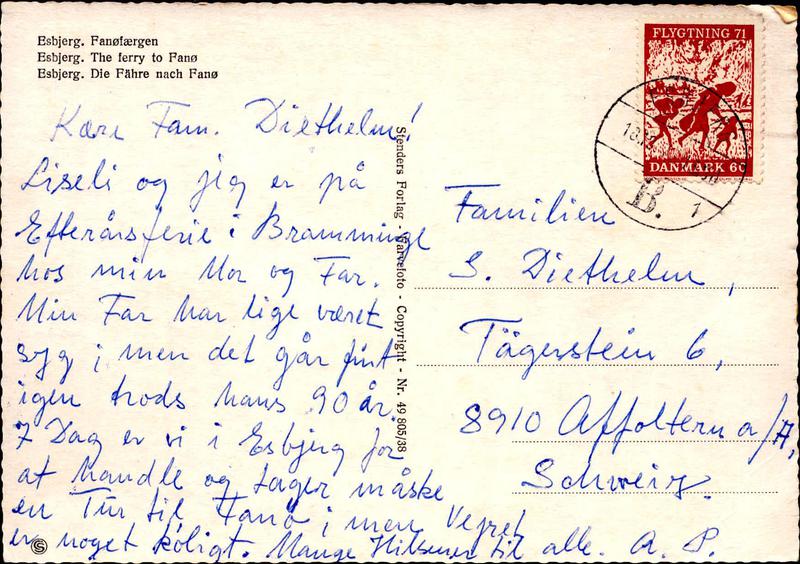 Esbjerg. Fanøfærgen
Esbjerg. The ferry to Fanø
Esbjerg. Die Fähre nach Fanø
Kære Fam. Diethelm!
Liseli og jeg er på
Efterårsferie i Bramminge
hos min Mor og Far.
Min Far har lige været
syg, men det går fint
igen trods hans 90 år.
I Dag er vi i Esbjerg for
at handle og tager måske
en Tur til Fanö, men Vejret
er noget køligt. Mange Hilsener til alle. A. P.
Stenders Forlag - Varcefoto - Copyright - Nr. 49 805/38
FLYGTNING 71
DANMARK 60
B.
1
Familien
S. Diethelm,
Tägerstein 6,
8910 Affoltern a/A,
Schweiz.
S